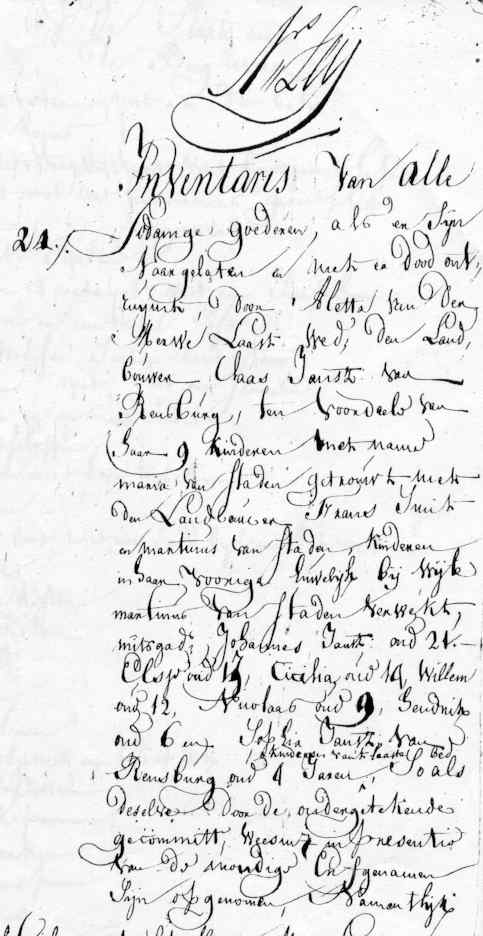 Inventaris Van alle
21. Sodanige goederen, als en Sijn
Naargelaten en met er dood ont,
ruijmt, Door Aletta Van Der
Merwe Laast Wed; Den Land,
bouwer Claas Jansz Van
Rensburg, ten Voordeele Van
haar 9 kinderen Met name
maria Van Staden getrouwt met
Den Landbouwer Frans Smit
en martinus Van Staden, kinderen
in haar Voorige huwelijk bij Wijle
martinus Van Staden Verwekt,
mitsgad; Johannes Jansz: oud 21.-
Elsje oud 17, Cicilia oud 14, Willem
oud 12, Nicolaas oud 9, Hendrik
oud 6 en Sophia Jansz. Van
kinderen van 't laaste bed
Rensburg oud 4 Jaren, So als
deselve Door de ondergetekende
gecommitt; Weesmrs in presentie
Van de mondige Erfgenamen
Sijn opgenomen, Namentlijk